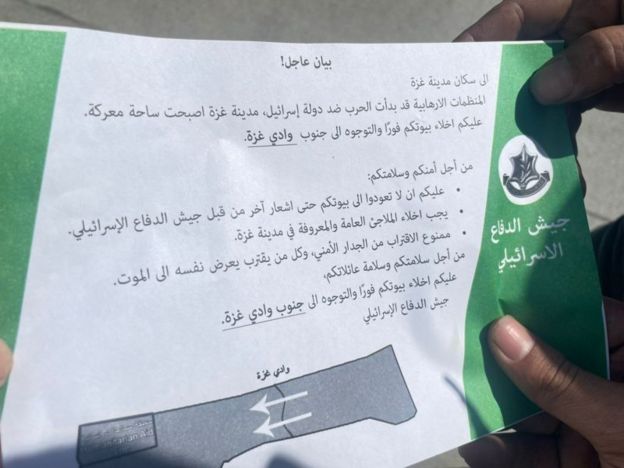 بيان عاجل!
الى سكان مدينة غزة
المنظمات الارهابية قد بدأت الحرب ضد دولة إسرائيل، مدينة غزة اصبحت ساحة معركة.
عليكم اخلاء بيوتكم فورًا والتوجوه الى جنوب وادي غزة.
من أجل أمنكم وسلامتكم:
• عليكم ان لا تعودوا الى بيوتكم حتى اشعار آخر من قبل جيش الدفاع الإسرائيلي.
• يجب اخلاء الملاجئ العامة والمعروفة في مدينة غزة.
• ممنوع الاقتراب من الجدار الأمني، وكل من يقترب يعرض نفسه الى الموت.
من أجل سلامتكم وسلامة عائلاتكم،
عليكم اخلاء بيوتكم فورًا والتوجوه الى جنوب وادي غزة.
جيش الدفاع الإسرائيلي
جيش الدفاع
الاسرائيلي
وادي غزة